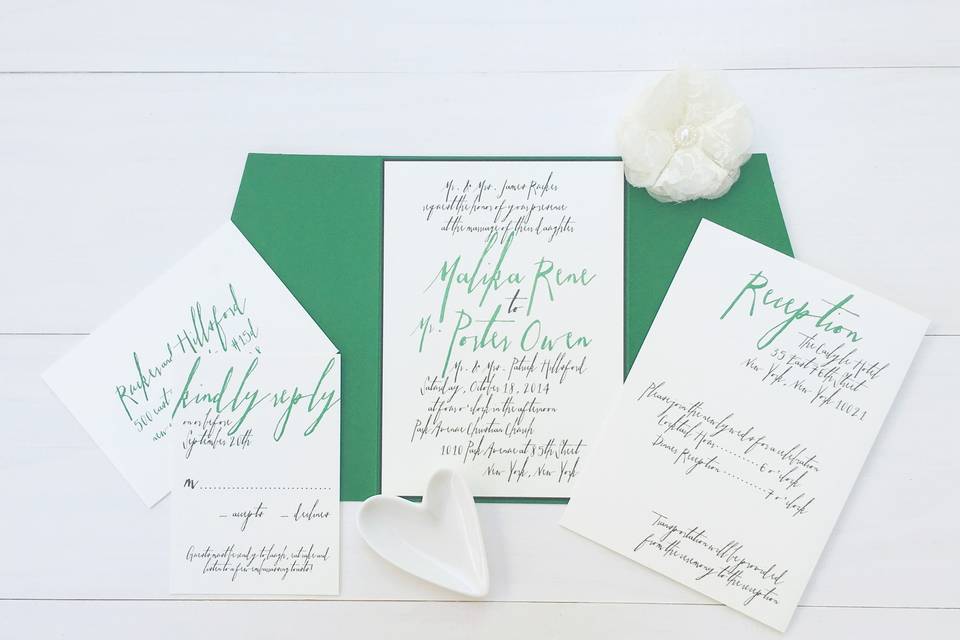 Rackes and Hillsford
500 East
#15d
new
kindly reply
on or before
September 20th.
M
_ accepts _ declines
Guests must be ready to laugh, eat cake and
listen to a few embarrassing toasts!
Mr. & Mrs. James Rackes
request the honor of your presence
at the marriage of their daughter
Malika Rene
to
Mr. Porter Owen
Mr. & Mrs. Patrick Hillsford
Saturday, October 18, 2014
at four o'clock in the afternoon
Park Avenue Christian Church
1010 Park Avenue at 85th Street
New York, New York
Reception
The Carlyle Hotel
35 East 76th Street
New York, New York 10021
Please join the newly weds for a celebration
Cocktail Hour.............6 o'clock
Dinner Reception.............7 o'clock
Transportation will be provided
from the ceremony to the reception